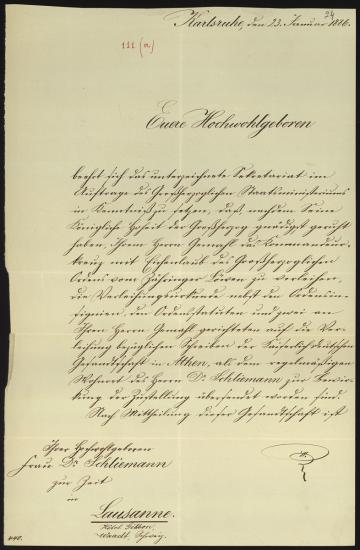 24
Karlsruhe, den 23. Januar 1886.
111 (a)
Euere Hochwohlgeboren
beehrt sich das unterzeichnete Sekretariat im
Auftrage des Großherzoglichen Staatsministeriums
in Kenntniß zu setzen, daß, nachdem Seine
Königliche Hoheit der Großherzog gnädigst geruht
haben, Ihrem Herrn Gemahl das Kommandeur-
kreuz mit Eichenlaub des Großherzoglichen
Ordens vom Zähringer Löwen zu verleihen,
die Verleihungsurkunde nebst den Ordensin-
signien, den Ordensstatuten und zwei an
Ihren Herrn Gemahl gerichteten auf die Ver-
leihung bezüglichen Schreiben der Kaiserlich Deutschen
Gesandtschaft in Athen, als dem regelmäßigen
Wohnort des Herrn Dr. Schliemann zur Bewir-
kung der Zustellung übersendet worden sind.
Nach Mittheilung dieser Gesandtschaft ist
Ihrer Hochwohlgeboren
Frau Dr. Schliemann
zur Zeit
in
Lausanne.
Hôtel Gibbon.
Waadt. Schweiz.